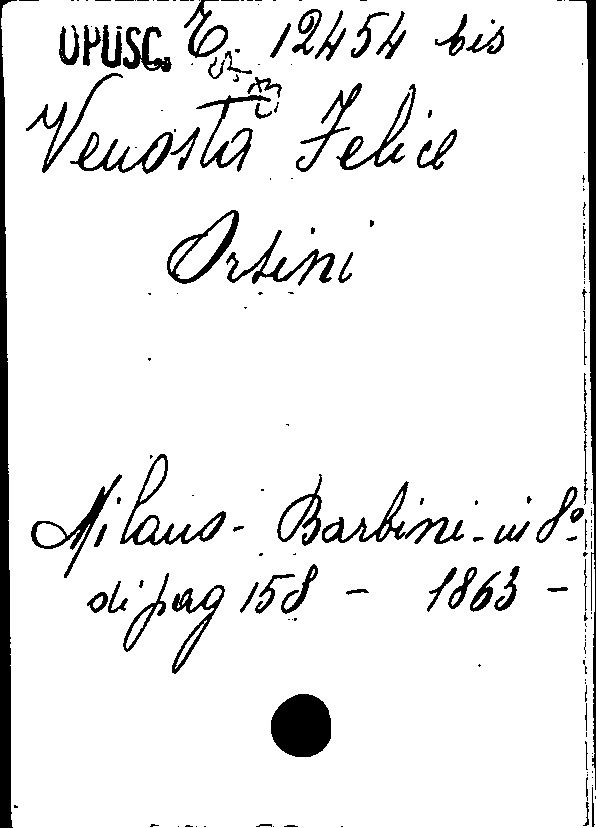 OPUSC. E. 12454 bis
Venosta Felice
Orsini
Milano - Barbini - in 8º -
di pag 158 - 1863 -